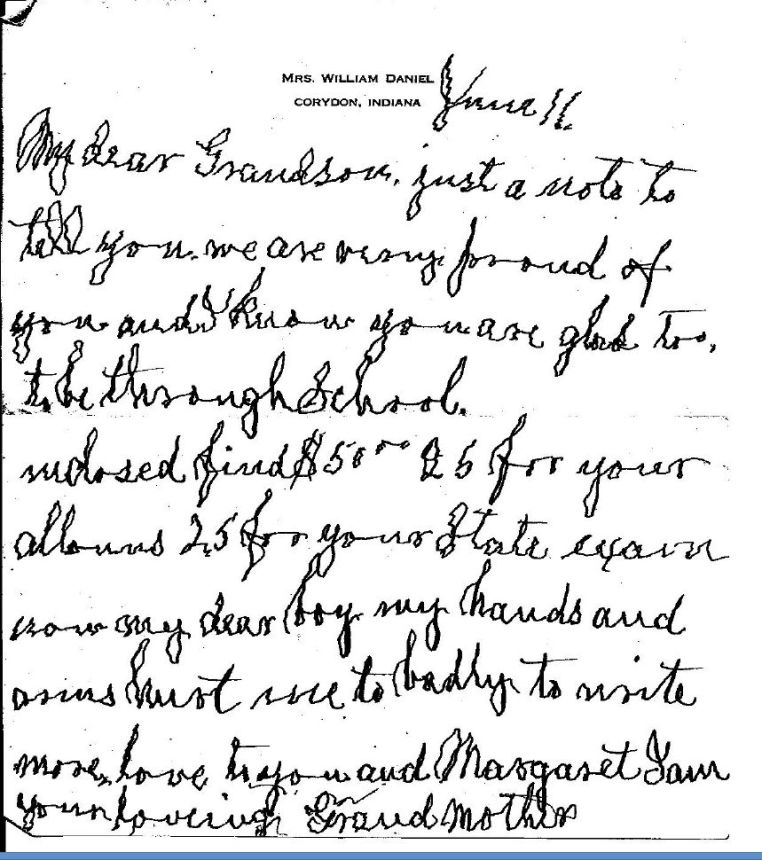 MRS. WILLIAM DANIEL
CORYDON, INDIANA
June 11.
My dear Grandson, just a note to
tell you we are very proud of
you and I know you are glad too,
to be through School.
inclosed find $50⁰⁰ 25 for your
allouns 25 for your State exam
now my dear boy my hands and
arms hurt me to badly to write
more, love to you and Margaret I am
your loveing Grand mother